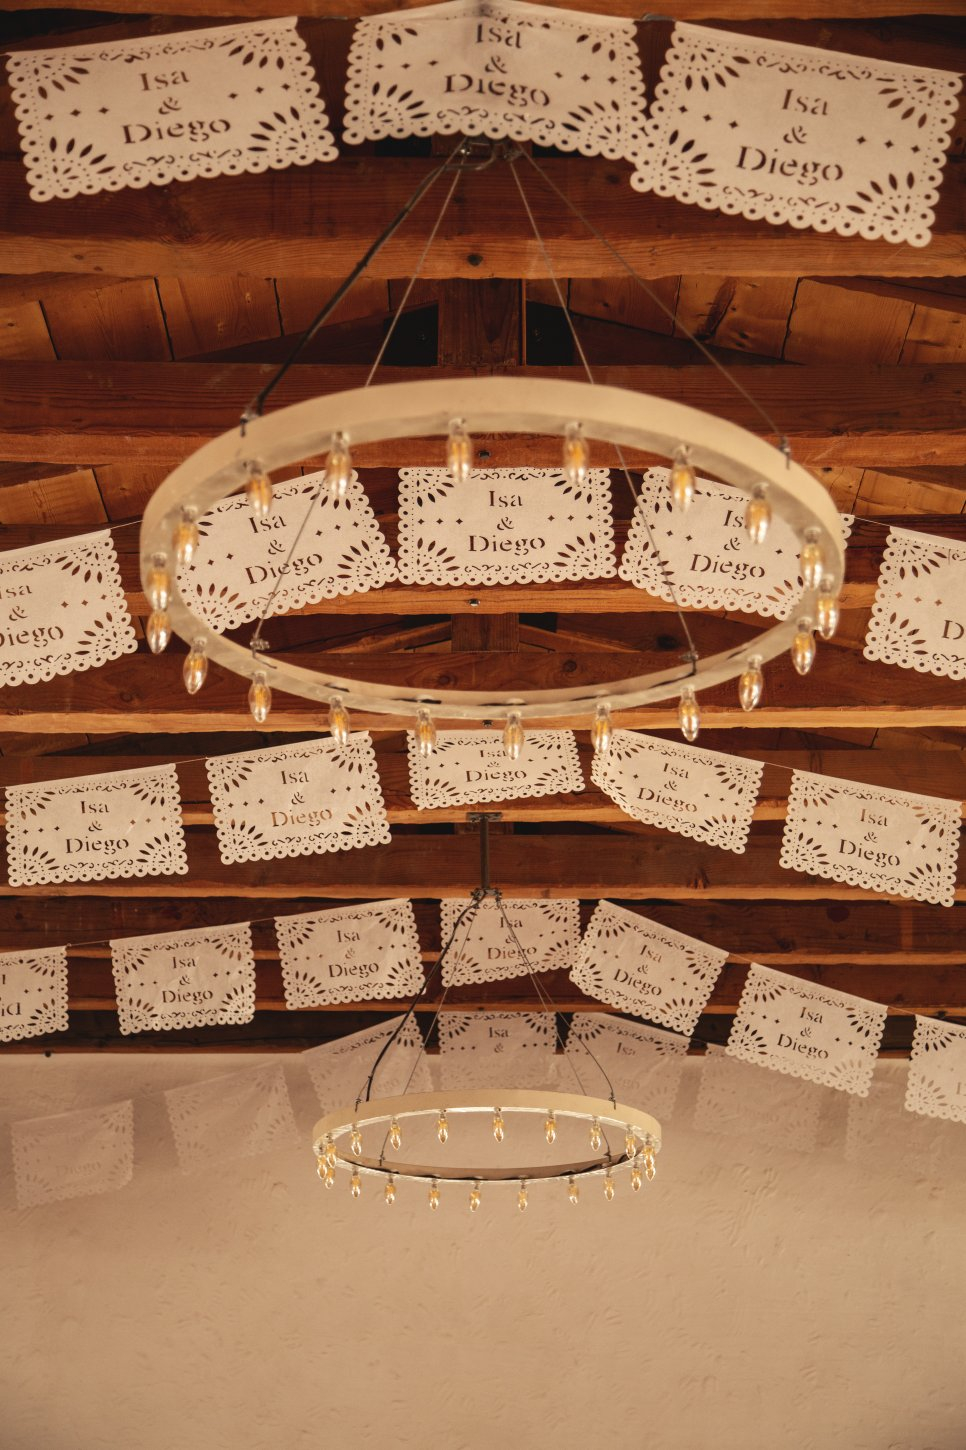 Isa
&
Diego
Isa
&
Diego
Isa
&
Diego
Isa
&
Diego
Isa
&
Diego
Isa
&
Diego
Isa
&
Diego
D
Isa
&
Diego
Isa
&
Diego
Isa
&
Diego
Isa
&
Diego
Isa
&
Diego
Isa
&
Diego
Isa
&
Diego
Isa
&
Diego
Isa
&
Diego
Isa
&
Diego
Isa
&
Isa